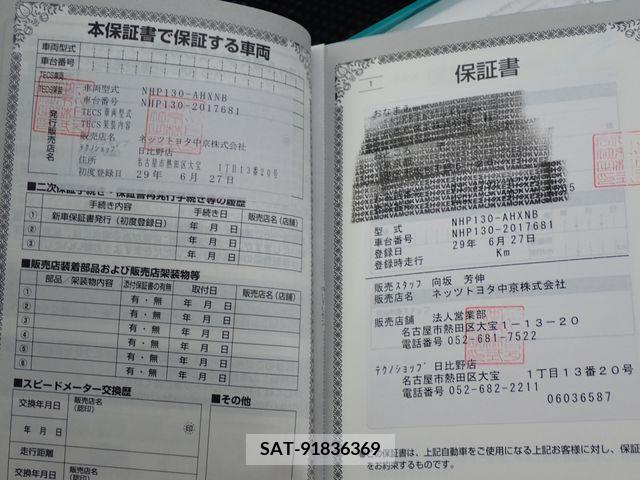 本保証書で保証する車両
車両型式
車台番号
TECS車両
TECS架装
発行販売店名
車両型式 NHP130-AHXNB
車台番号 NHP130-2017681
TECS車両型式
TECS架装内容
販売店名 ネッツトヨタ中京株式会社
テクノショップ 日比野店
住所 名古屋市熱田区大宝 1丁目13番20号
初度登録日 29年 6月 27日
■二次保証手続き・保証書再発行手続き等の履歴
手続き内容 手続き日 販売店名(店舗)
① 新車保証書発行(初度登録日) 年 月 日
② 年 月 日
③ 年 月 日
■販売店装着部品および販売店架装物等
部品/架装物内容 添付保証書の有無 取付日 販売店名(店舗)
① 有・無 年 月 日
② 有・無 年 月 日
③ 有・無 年 月 日
④ 有・無 年 月 日
⑤ 有・無 年 月 日
⑥ 有・無 年 月 日
■スピードメーター交換歴
交換年月日 販売店名(認印)
年 月 日 ㊞
走行距離
交換年月日 販売店名(認印)
■その他
1
保証書
おなまえ
型式 NHP130-AHXNB
車台番号 NHP130-2017681
登録日 29年 6月27日
登録時走行 Km
販売スタッフ 向坂 芳伸
販売店名 ネッツトヨタ中京株式会社
販売店舗 法人営業部
名古屋市熱田区大宝1-13-20
電話番号 052-681-7522
テクノショップ 日比野店
名古屋市熱田区大宝 1丁目13番20号
電話番号 052-682-2211
06036587
この保証書は、上記自動車をご使用になる上記お客様に対し、保証
をお約束するものです。
SAT-91836369